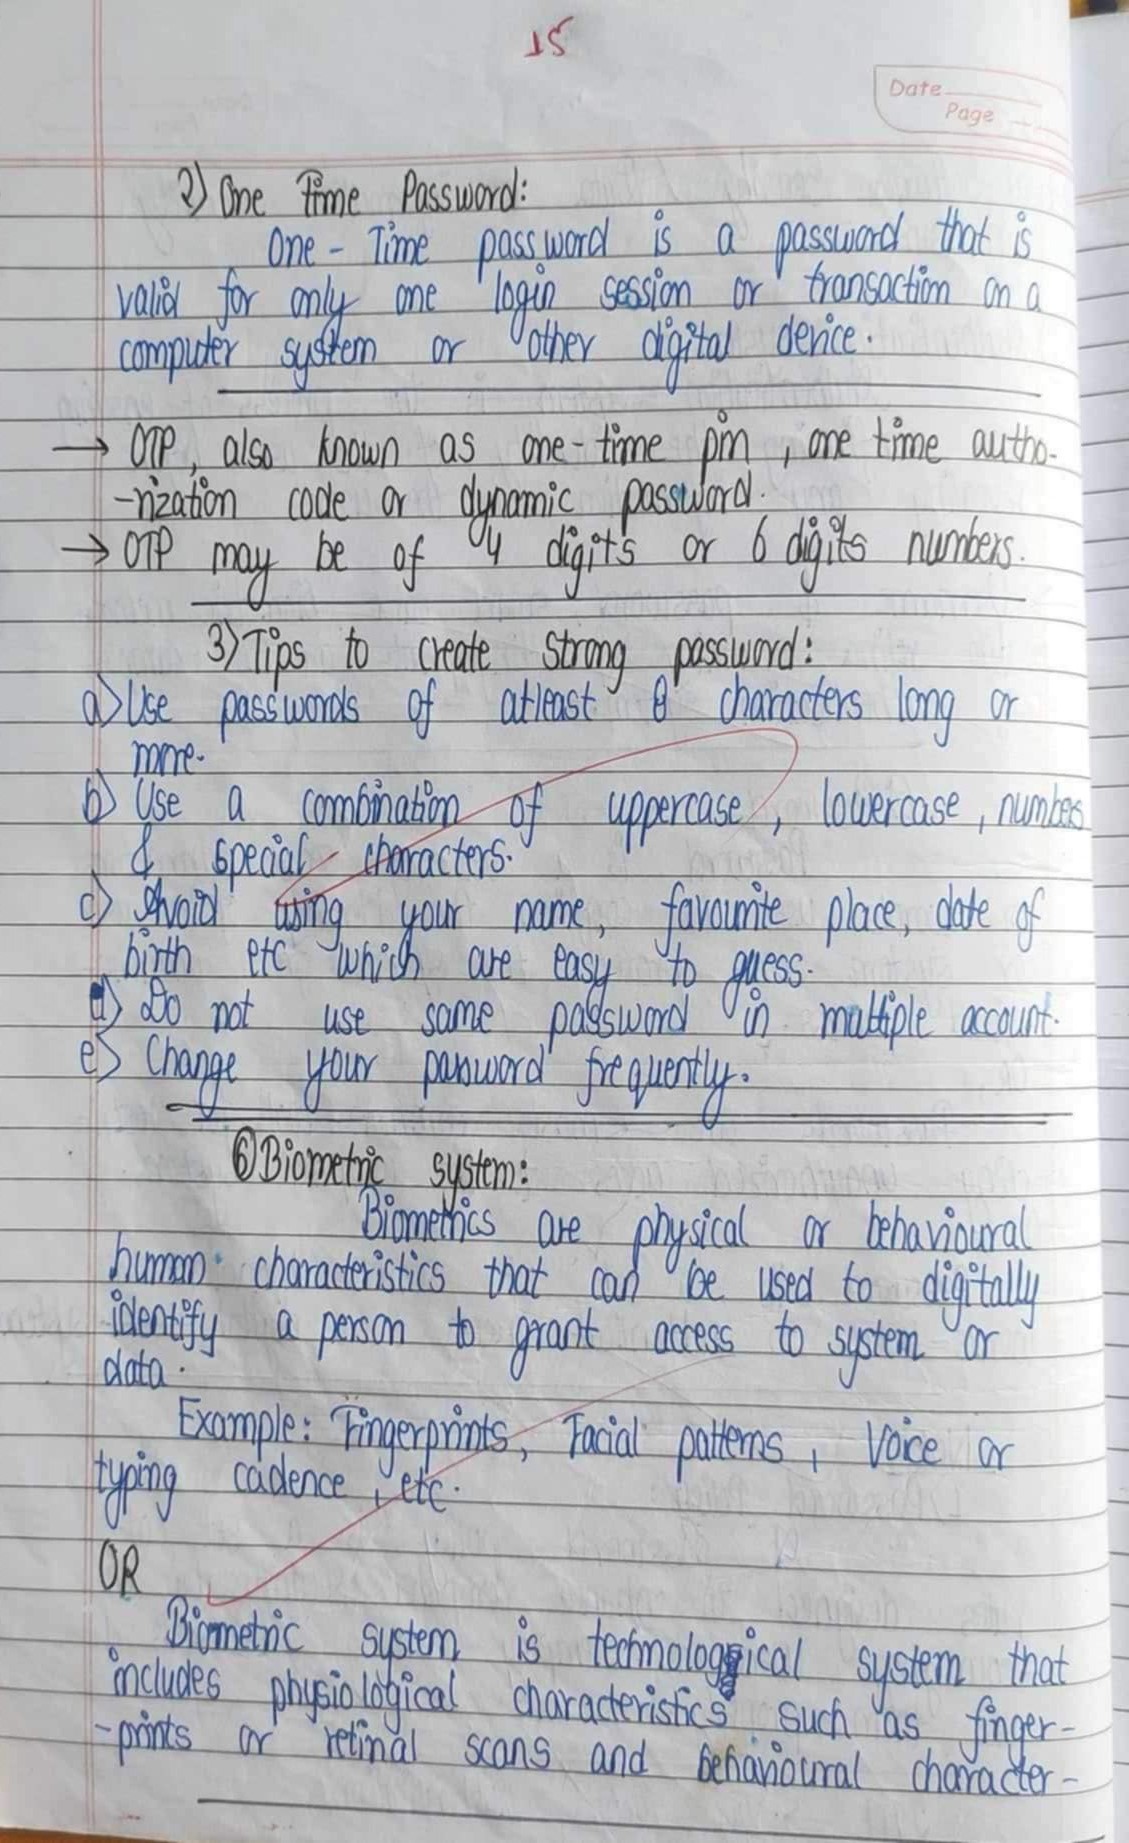 15
Date
Page
2) One Time Password:
One - Time password is a password that is
valid for only one login session or transaction on a
computer system or other digital device.
→ OTP, also known as one-time pin, one time autho-
-rization code or dynamic password.
→ OTP may be of 4 digits or 6 digits numbers.
3) Tips to create strong password:
a) Use passwords of atleast 8 characters long or
more.
b) Use a combination of uppercase, lowercase, numbers
& special characters.
c) Avoid using your name, favourite place, date of
birth etc which are easy to guess.
d) Do not use same password in multiple account.
e) Change your password frequently.
⑥ Biometric system:
Biometrics are physical or behavioural
human characteristics that can be used to digitally
identify a person to grant access to system or
data.
Example: Fingerprints, Facial patterns, Voice or
typing cadence, etc.
OR
Biometric system is technological system that
includes physiological characteristics such as finger-
-prints or retinal scans and behavioural character-